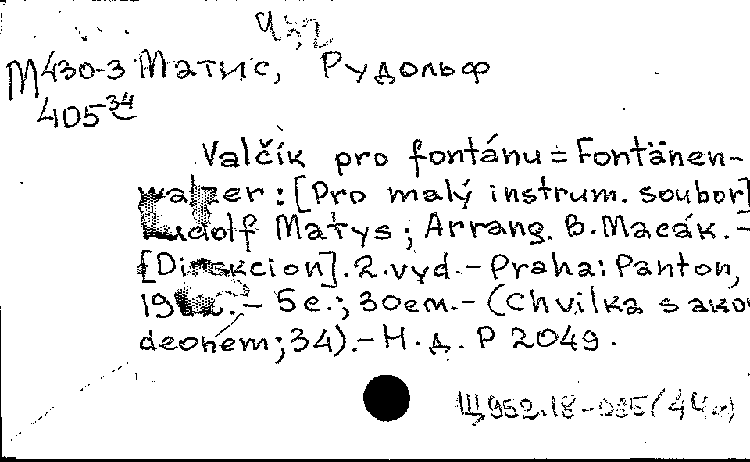 М430-3 Матис, Рудольф
405 34
Valčík pro fontánu = Fontänen-
walzer : [Pro malý instrum. soubor]
Rudolf Matys ; Arrang. B. Macák. -
[Direkcion]. 2. vyd. - Praha : Panton,
- 5 с. ; 30 см. - (Chvilka s akor
deonem ; 34). - Н. д. P 2049.